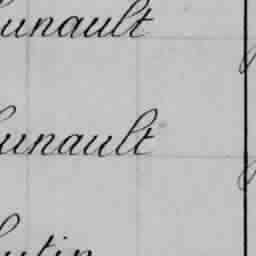 unault
unault
utin